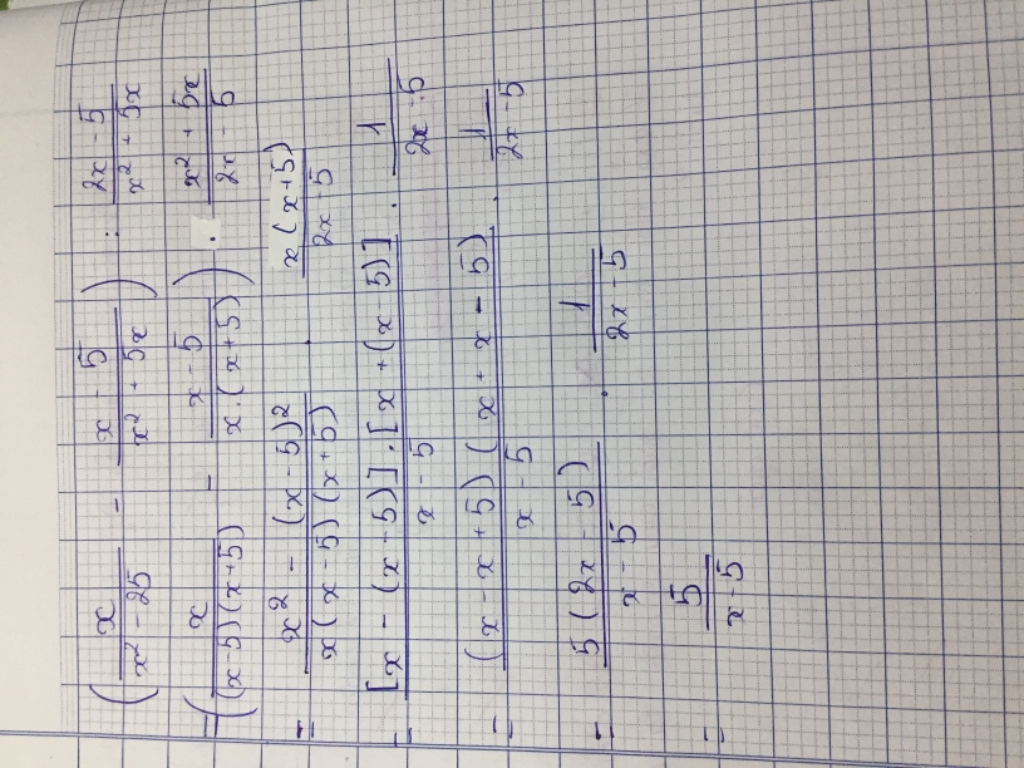 (x/(x² - 25) - (x - 5)/(x² + 5x)) : (2x - 5)/(x² + 5x)
= (x/((x-5)(x+5)) - (x - 5)/(x.(x+5))) . (x² + 5x)/(2x - 5)
= (x² - (x - 5)²)/(x(x - 5)(x+5)) . (x(x+5))/(2x - 5)
= ([x - (x - 5)].[x + (x - 5)])/(x - 5) . 1/(2x - 5)
= ((x - x + 5)(x + x - 5))/(x - 5) . 1/(2x - 5)
= (5(2x - 5))/(x - 5) . 1/(2x - 5)
= 5/(x - 5)